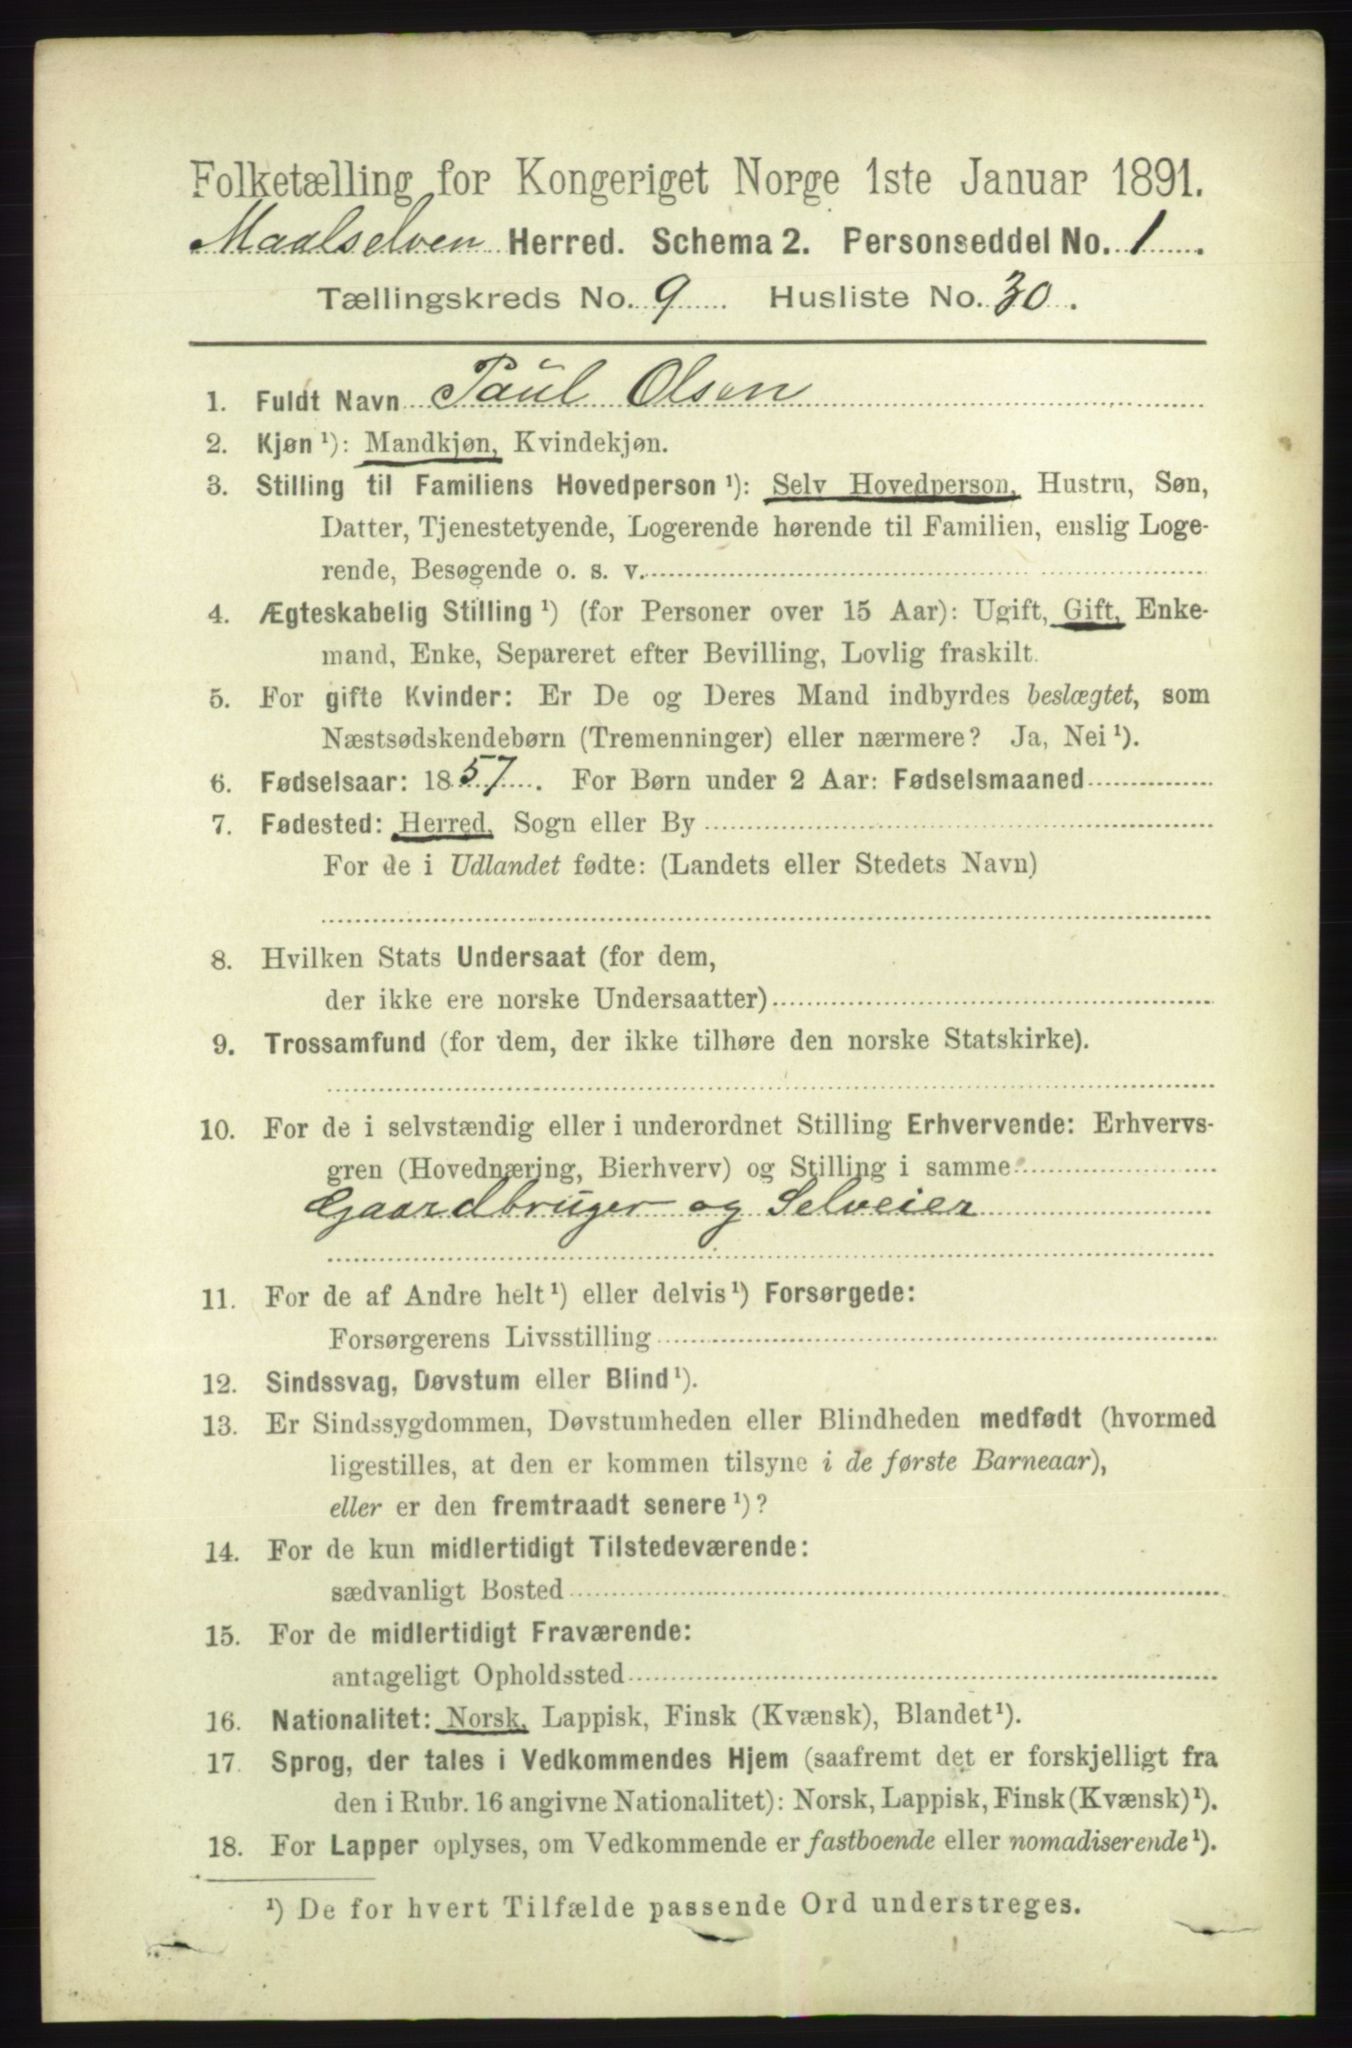 Folketælling for Kongeriget Norge 1ste Januar 1891.
Maalselven Herred. Schema 2. Personseddel No. 1.
Tællingskreds No. 9 Husliste No. 30.
1. Fuldt Navn Paul Olsen
2. Kjøn ¹): Mandkjøn, Kvindekjøn.
3. Stilling til Familiens Hovedperson ¹): Selv Hovedperson, Hustru, Søn,
Datter, Tjenestetyende, Logerende hørende til Familien, enslig Loge-
rende, Besøgende o. s. v.
4. Ægteskabelig Stilling ¹) (for Personer over 15 Aar): Ugift, Gift, Enke-
mand, Enke, Separeret efter Bevilling, Lovlig fraskilt.
5. For gifte Kvinder: Er De og Deres Mand indbyrdes beslægtet, som
Næstsødskendebørn (Tremenninger) eller nærmere? Ja, Nei ¹).
6. Fødselsaar: 1857. For Børn under 2 Aar: Fødselsmaaned
7. Fødested: Herred, Sogn eller By
For de i Udlandet fødte: (Landets eller Stedets Navn)
8. Hvilken Stats Undersaat (for dem,
der ikke ere norske Undersaatter)
9. Trossamfund (for dem, der ikke tilhøre den norske Statskirke).
10. For de i selvstændig eller i underordnet Stilling Erhvervende: Erhvervs-
gren (Hovednæring, Bierhverv) og Stilling i samme
Gaardbruger og Selveier
11. For de af Andre helt ¹) eller delvis ¹) Forsørgede:
Forsørgerens Livsstilling
12. Sindssvag, Døvstum eller Blind ¹).
13. Er Sindssygdommen, Døvstumheden eller Blindheden medfødt (hvormed
ligestilles, at den er kommen tilsyne i de første Barneaar),
eller er den fremtraadt senere ¹)?
14. For de kun midlertidigt Tilstedeværende:
sædvanligt Bosted
15. For de midlertidigt Fraværende:
antageligt Opholdssted
16. Nationalitet: Norsk, Lappisk, Finsk (Kvænsk), Blandet ¹).
17. Sprog, der tales i Vedkommendes Hjem (saafremt det er forskjelligt fra
den i Rubr. 16 angivne Nationalitet): Norsk, Lappisk, Finsk (Kvænsk) ¹).
18. For Lapper oplyses, om Vedkommende er fastboende eller nomadiserende ¹).
¹) De for hvert Tilfælde passende Ord understreges.